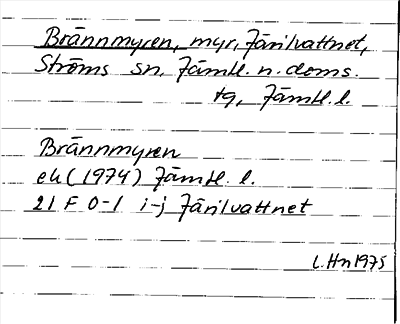 Brännmyren, myr, Järilvattnet,
Ströms sn, Jämtl. n. doms.
tg, Jämtl. l.
Brännmyren
ek (1974) Jämtl. l.
21 F 0-1 i-j Järilvattnet
L.Hn 1975